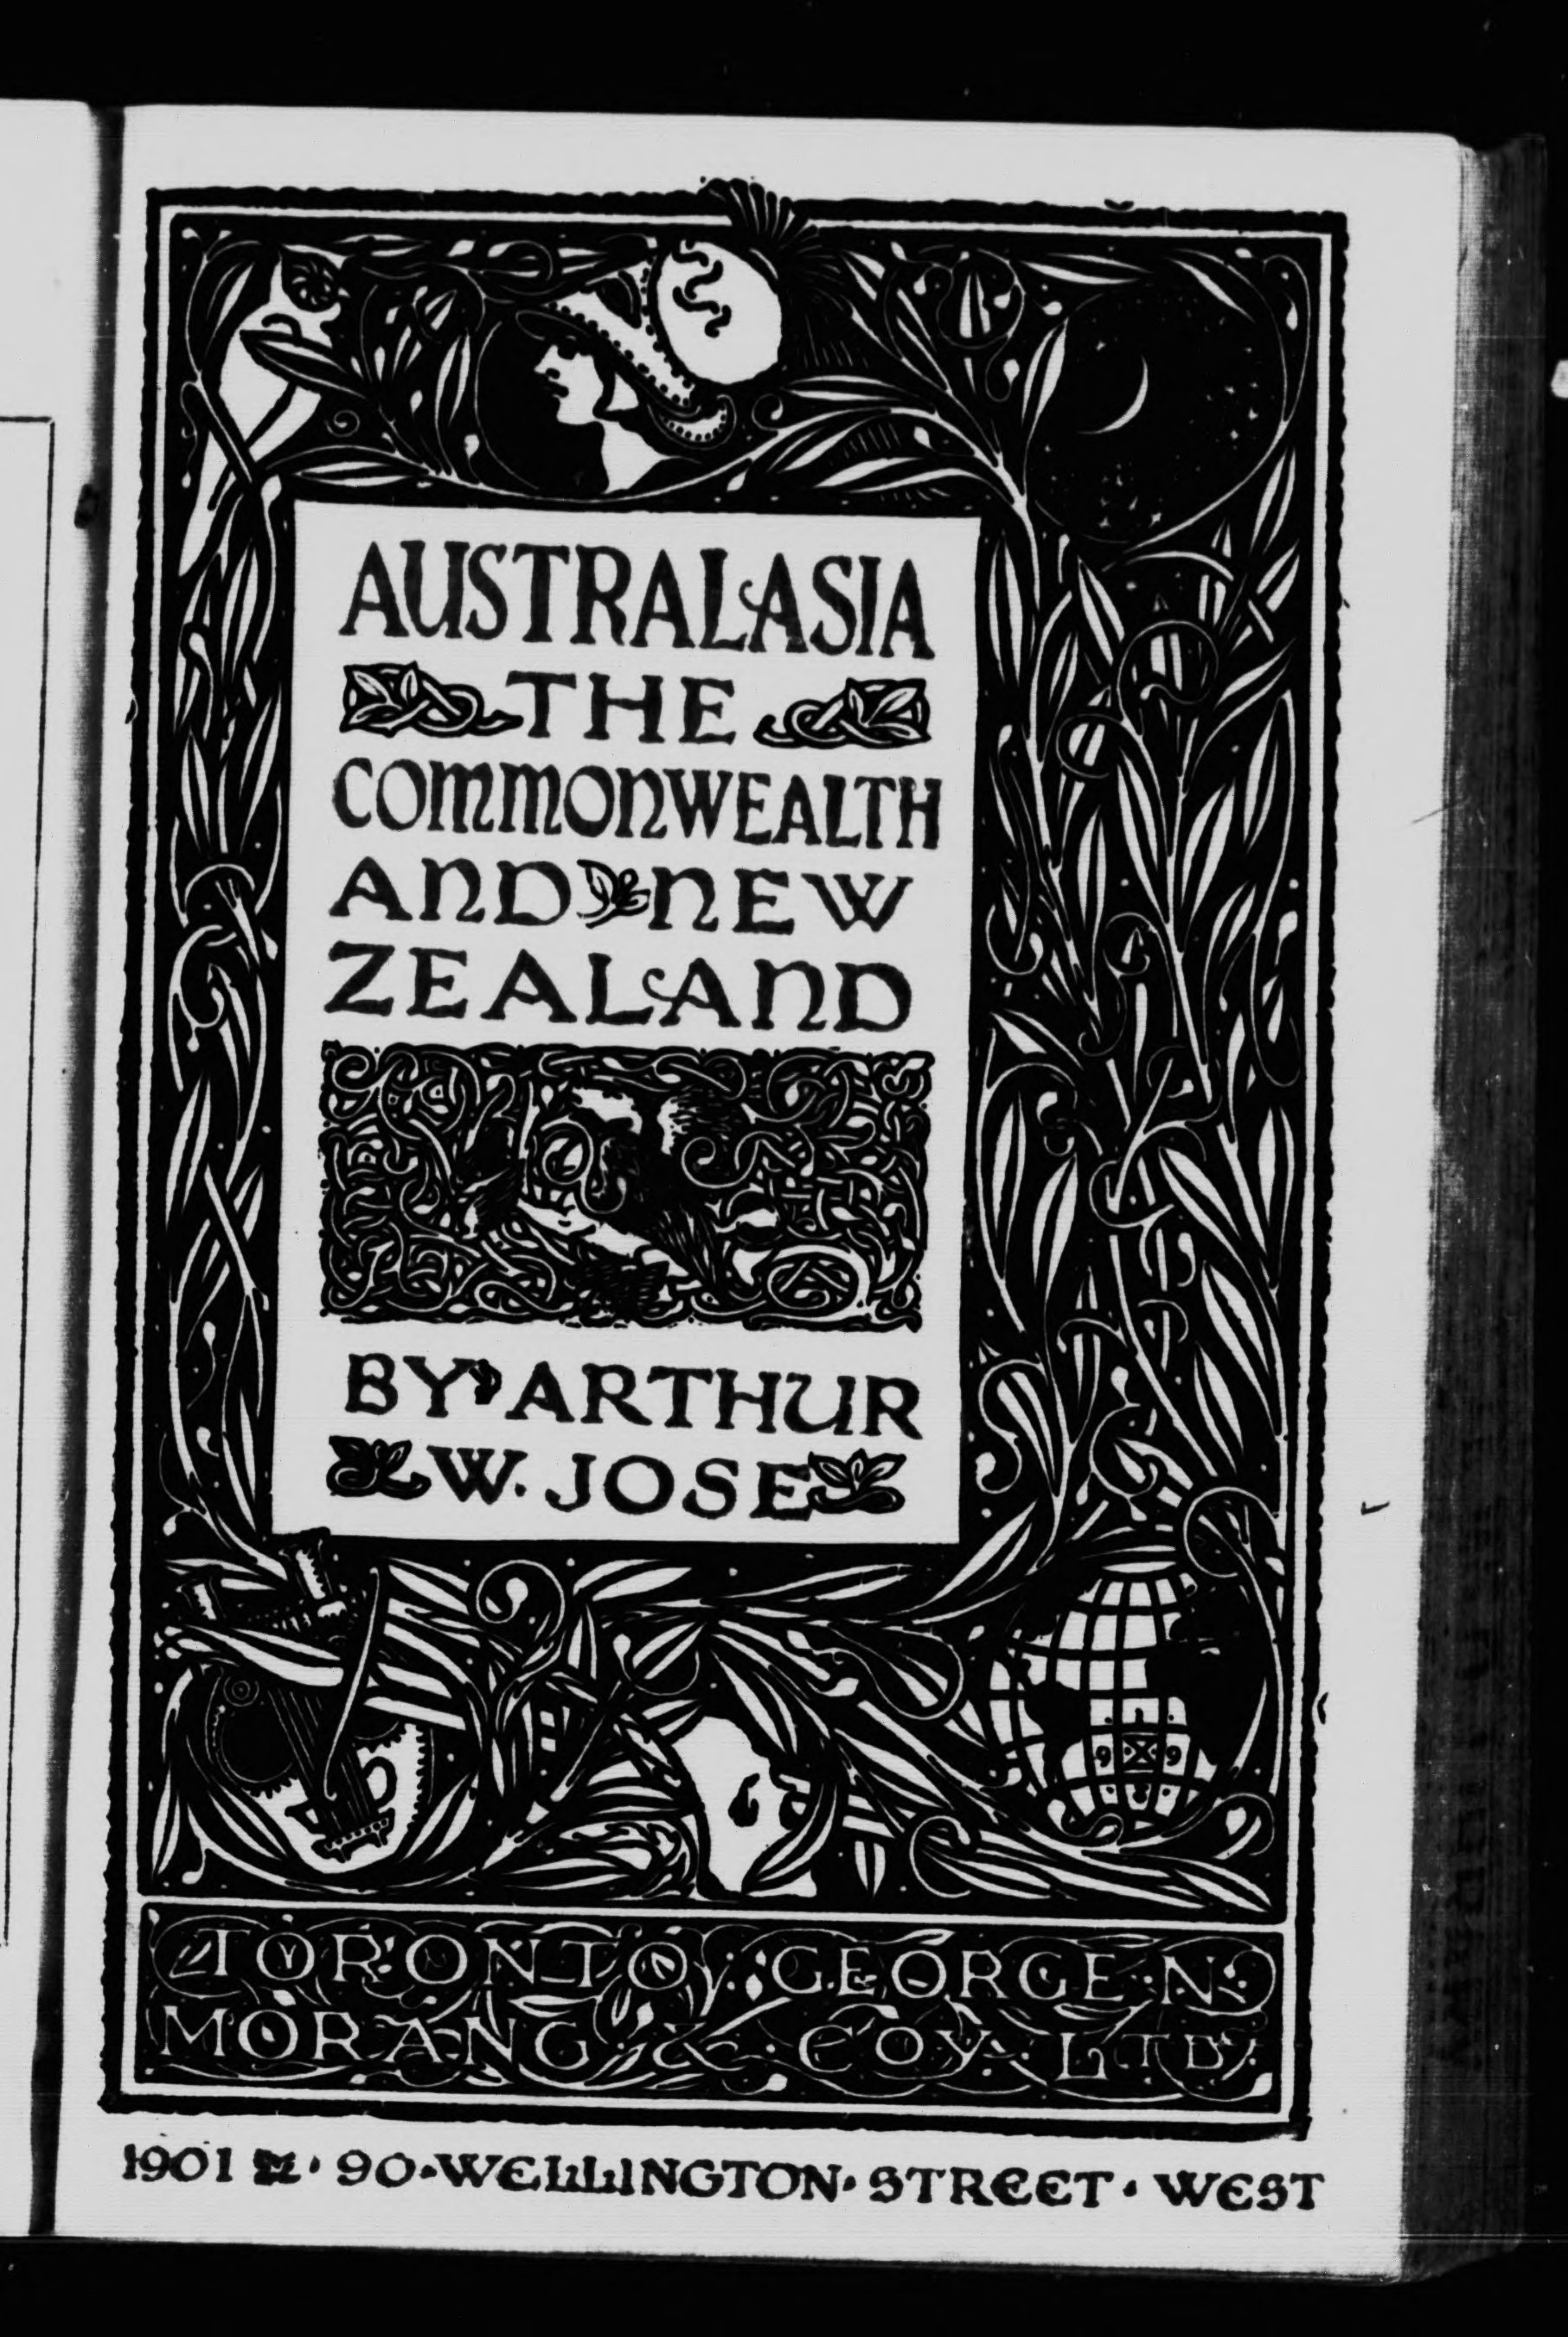 AUSTRALASIA
THE
COMMONWEALTH
AND NEW
ZEALAND
BY ARTHUR
W. JOSE
TORONTO GEORGE N.
MORANG & COY LTD
1901 · 90 · WELLINGTON · STREET · WEST